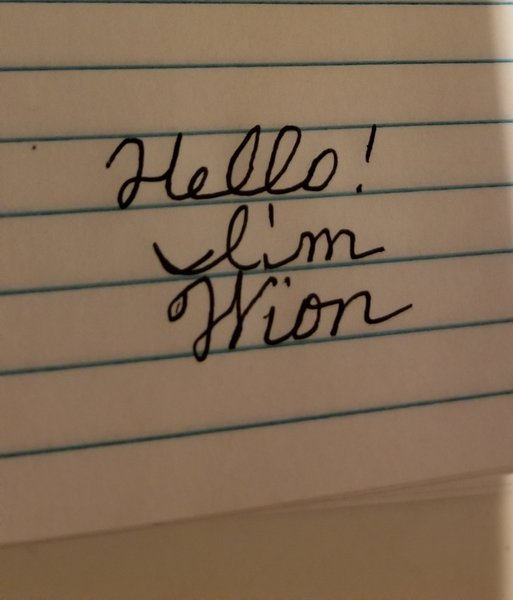 Hello!
I'm
Wion